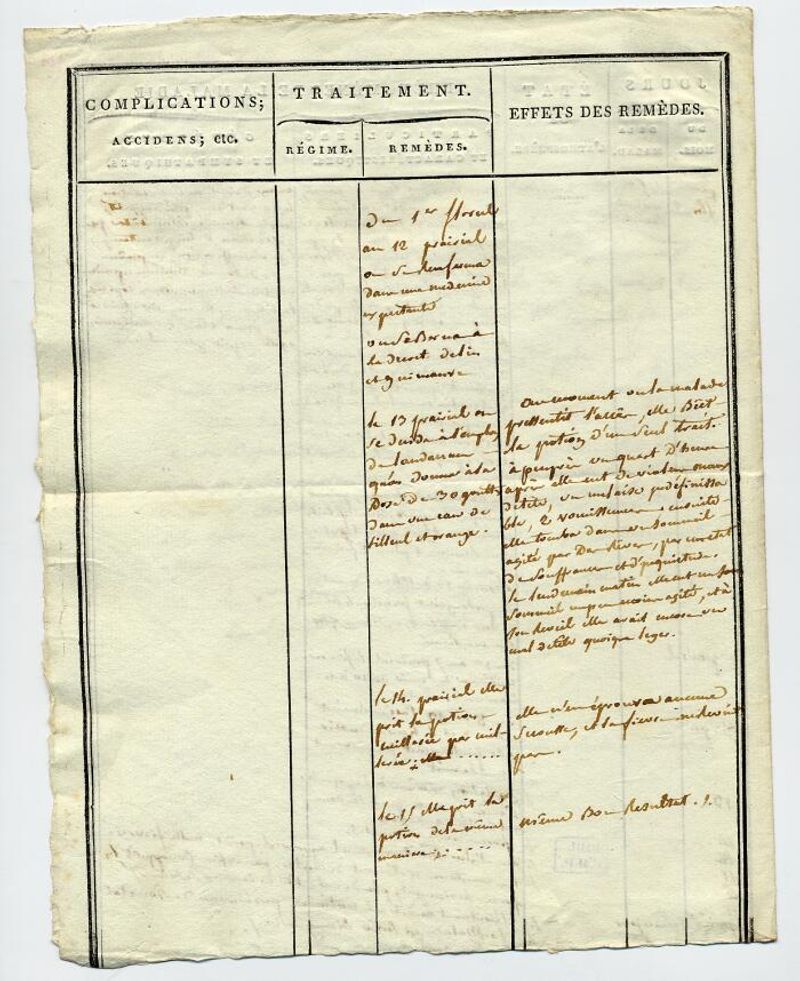 COMPLICATIONS;
ACCIDENS; etc.
TRAITEMENT.
RÉGIME.
REMÈDES.
EFFETS DES REMÈDES.
du 1er floreal
au 12 prairial
on se renferma
dans une medecine
expectante
on se Borna à
la decoct de lin
et guimauve
le 13 prairial on
se decida à l'emploi
du laudanum
qu'on donna à la
Dose de 30 goutts
dans une eau de
tilleul et orange.
Au moment ou la malade
pressentit l'accès, elle Bût
la potion d'un seul trait.
à peuprès un quart D'heure
après elle eut de violens maux
de tete, un malaise indéfinissa
ble, 2 vomissemens ensuite
elle tomba dans un sommeil
agité par Des Rêves, par un état
de souffrance et d'inquietude.
le lendemain matin elle eut un
sommeil un peu moins agité, et à
son reveil elle avait encore un
mal de tete quoique leger.
le 14. prairial elle
prit la potion
cuillerée par cuil-
lerée
elle n'en éprouva aucune
secousse, et la fievre ne revint
pas.
le 15 elle prit la
potion de la même
maniere
même Bon Resultat.